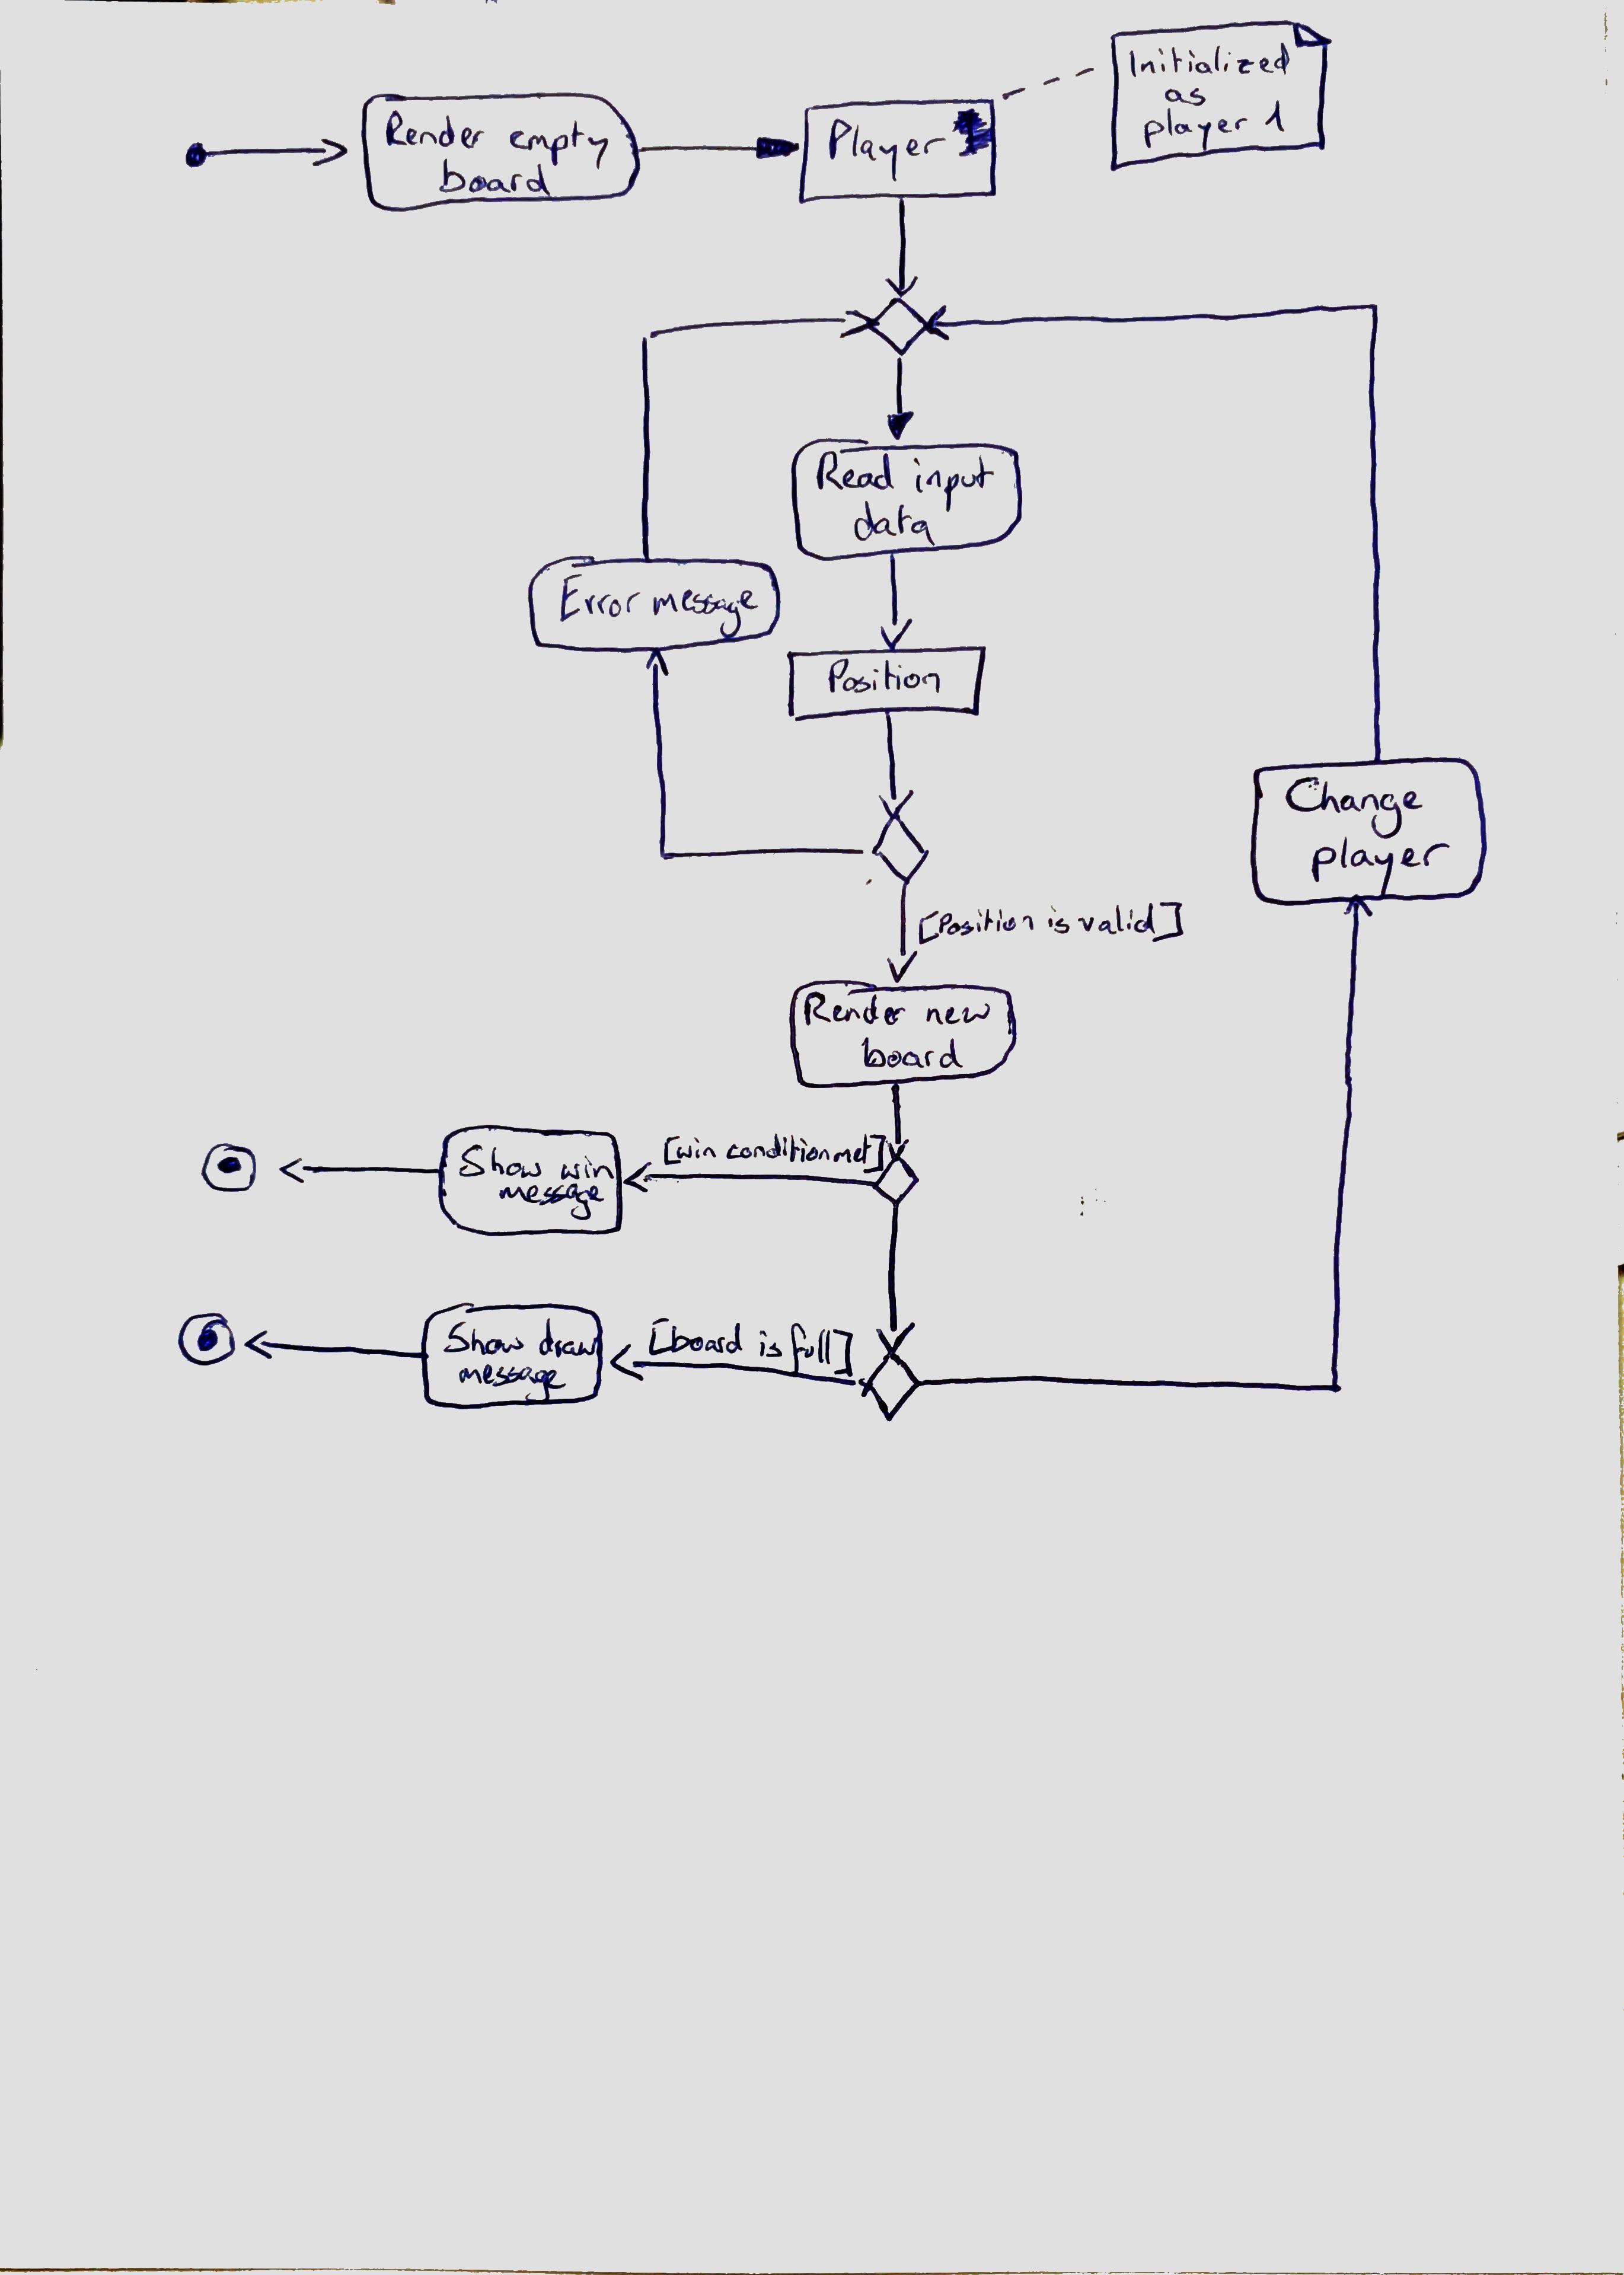 Initialized
as
player 1
Render empty
board
Player
Read input
data
Error message
Position
Change
player
[Position is valid]
Render new
board
[win condition met]
Show win
message
[board is full]
Show draw
message